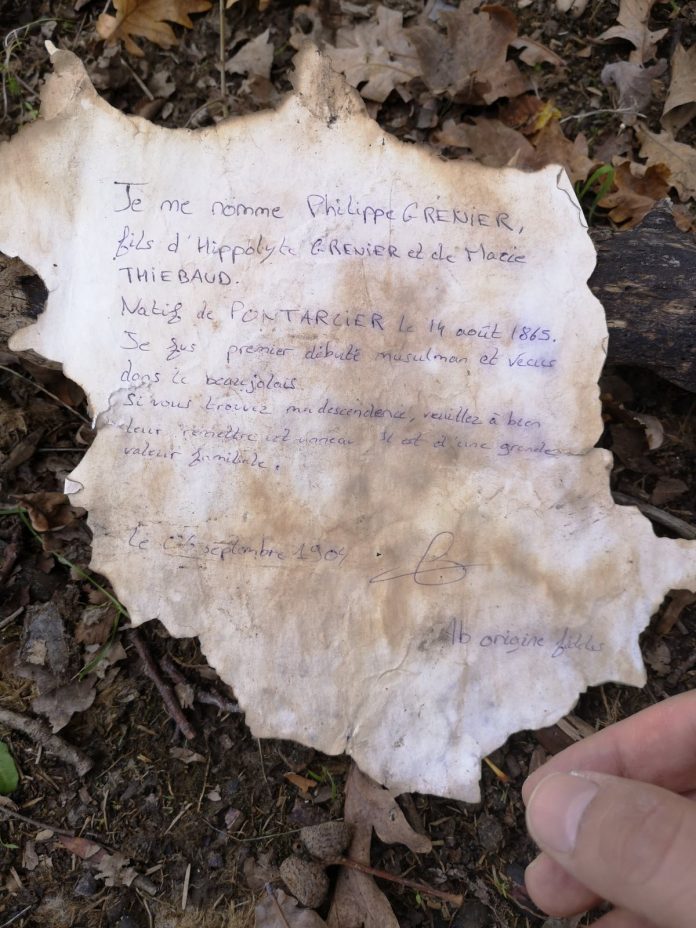 Je me nomme Philippe GRENIER,
fils d'Hippolyte GRENIER et de Marie
THIEBAUD.
Natif de PONTARLIER le 14 août 1865.
Je fus premier député musulman et vécus
dans le beaujolais.
Si vous trouvez ma descendence, veuillez à bien
leur remettre cet anneau. Il est d'une grande
valeur familiale.
le septembre 1904
Ab origine fidelis